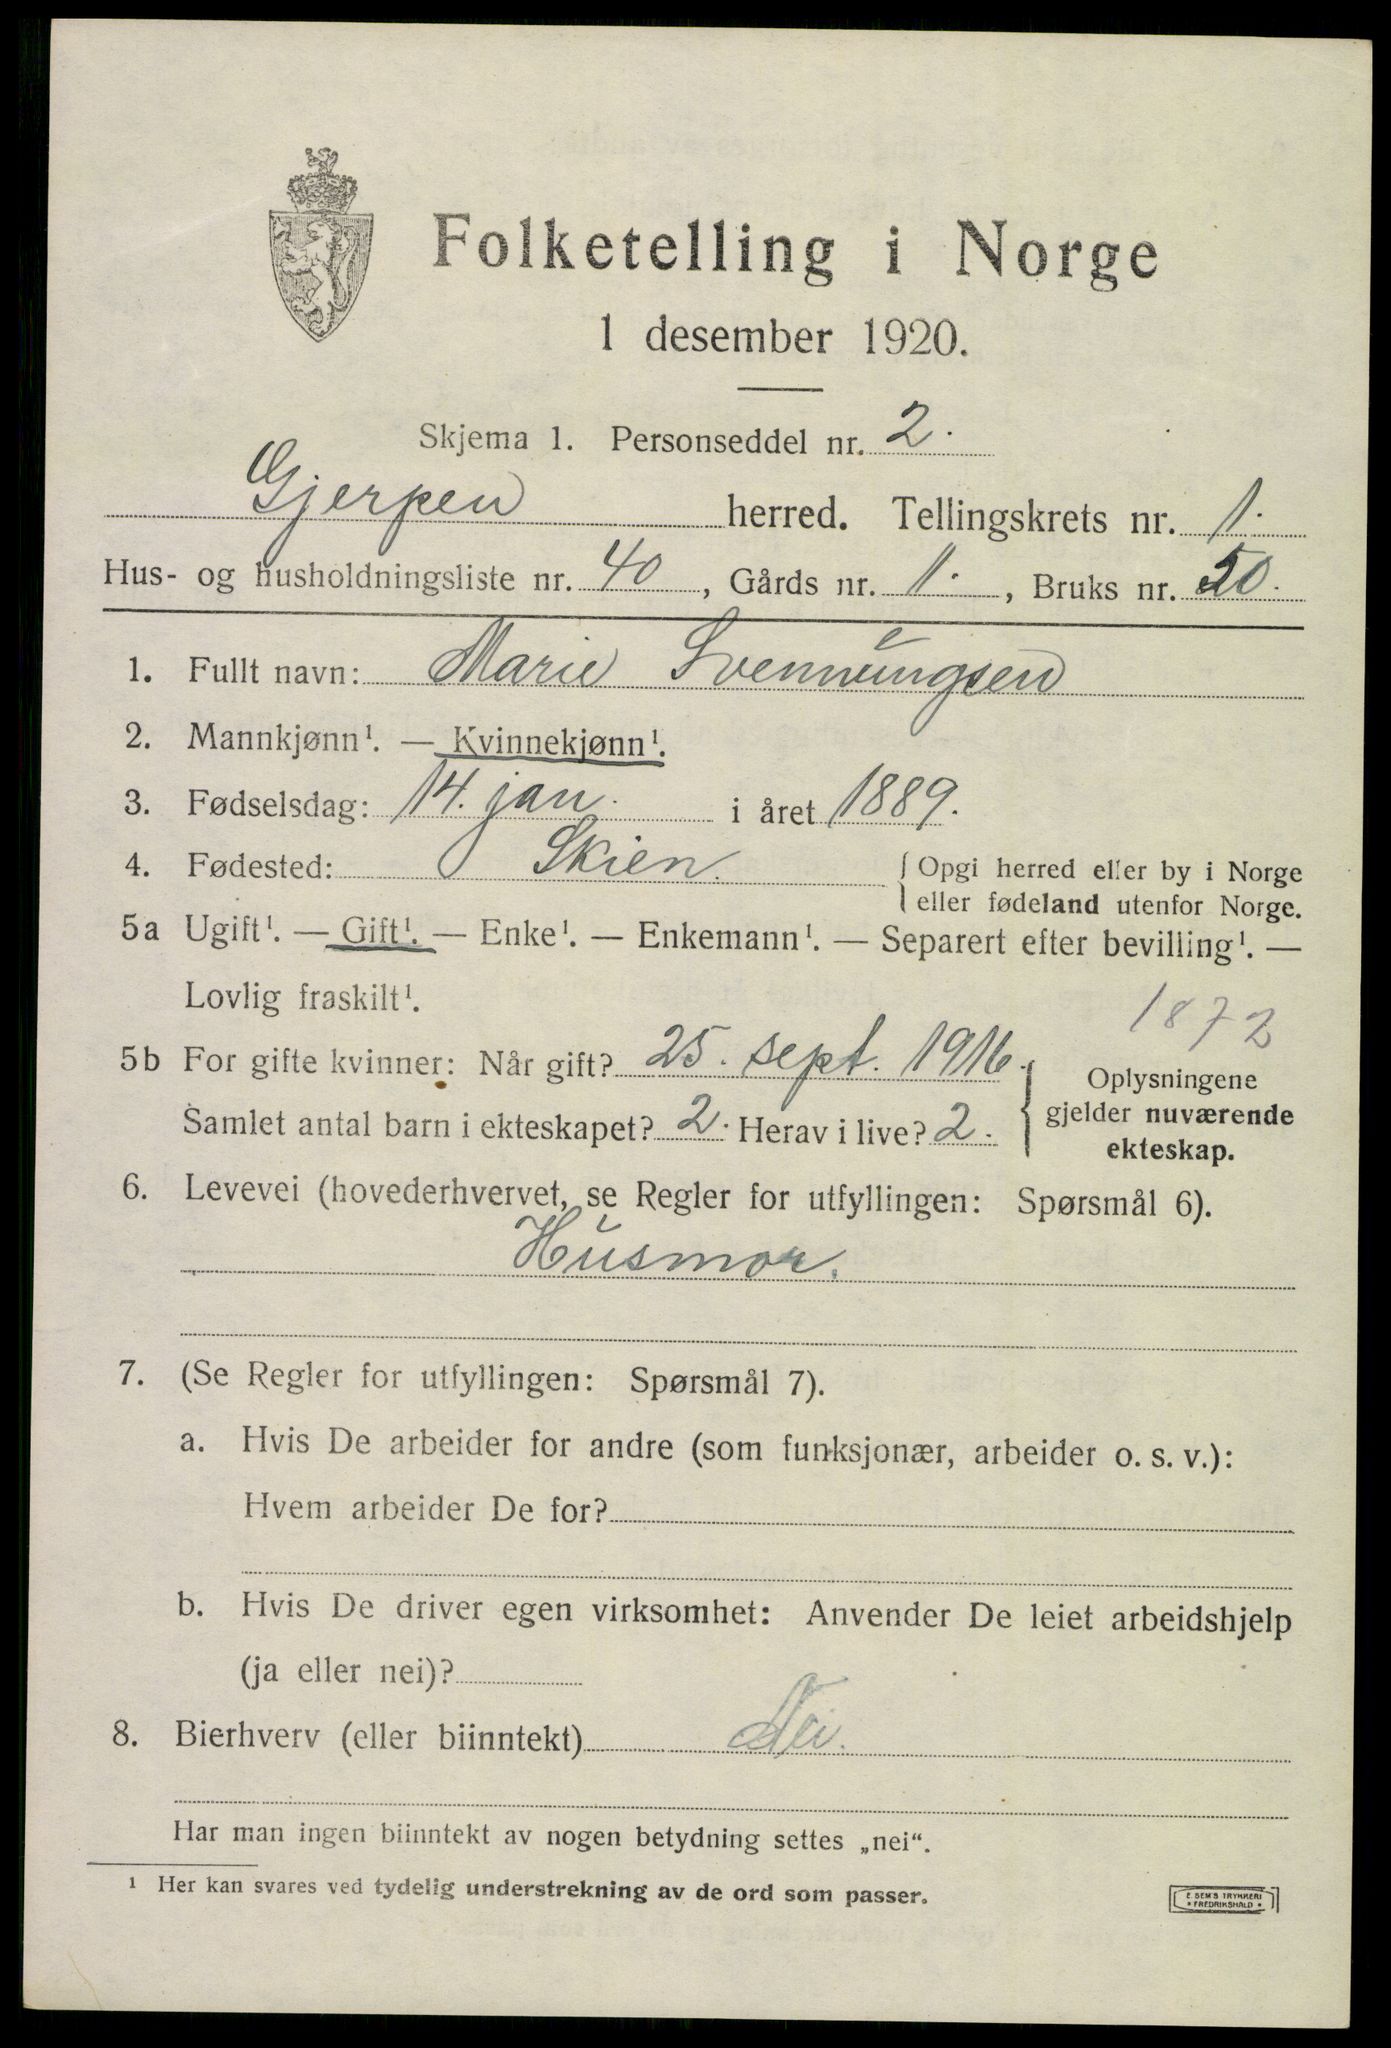 Folketelling i Norge
1 desember 1920.
Skjema 1. Personseddel nr. 2.
Gjerpen herred. Tellingskrets nr. 1.
Hus- og husholdningsliste nr. 40, Gårds nr. 1., Bruks nr. 50.
1. Fullt navn: Marie Svennungsen
2. Mannkjønn¹. — Kvinnekjønn¹.
3. Fødselsdag: 14. jan. i året 1889.
4. Fødested: Skien. { Opgi herred eller by i Norge
eller fødeland utenfor Norge.
5a Ugift¹. — Gift¹. — Enke¹. — Enkemann¹. — Separert efter bevilling¹. —
Lovlig fraskilt¹.
1872
5b For gifte kvinner: Når gift? 25. sept. 1916.
Samlet antal barn i ekteskapet? 2. Herav i live? 2.
Oplysningene
gjelder nuværende
ekteskap.
6. Levevei (hovederhvervet, se Regler for utfyllingen: Spørsmål 6).
Husmor.
7. (Se Regler for utfyllingen: Spørsmål 7).
a. Hvis De arbeider for andre (som funksjonær, arbeider o. s. v.):
Hvem arbeider De for?
b. Hvis De driver egen virksomhet: Anvender De leiet arbeidshjelp
(ja eller nei)?
8. Bierhverv (eller biinntekt) Nei.
Har man ingen biinntekt av nogen betydning settes „nei“.
¹ Her kan svares ved tydelig understrekning av de ord som passer.
E. SEM'S TRYKKERI
* FREDRIKSHALD *